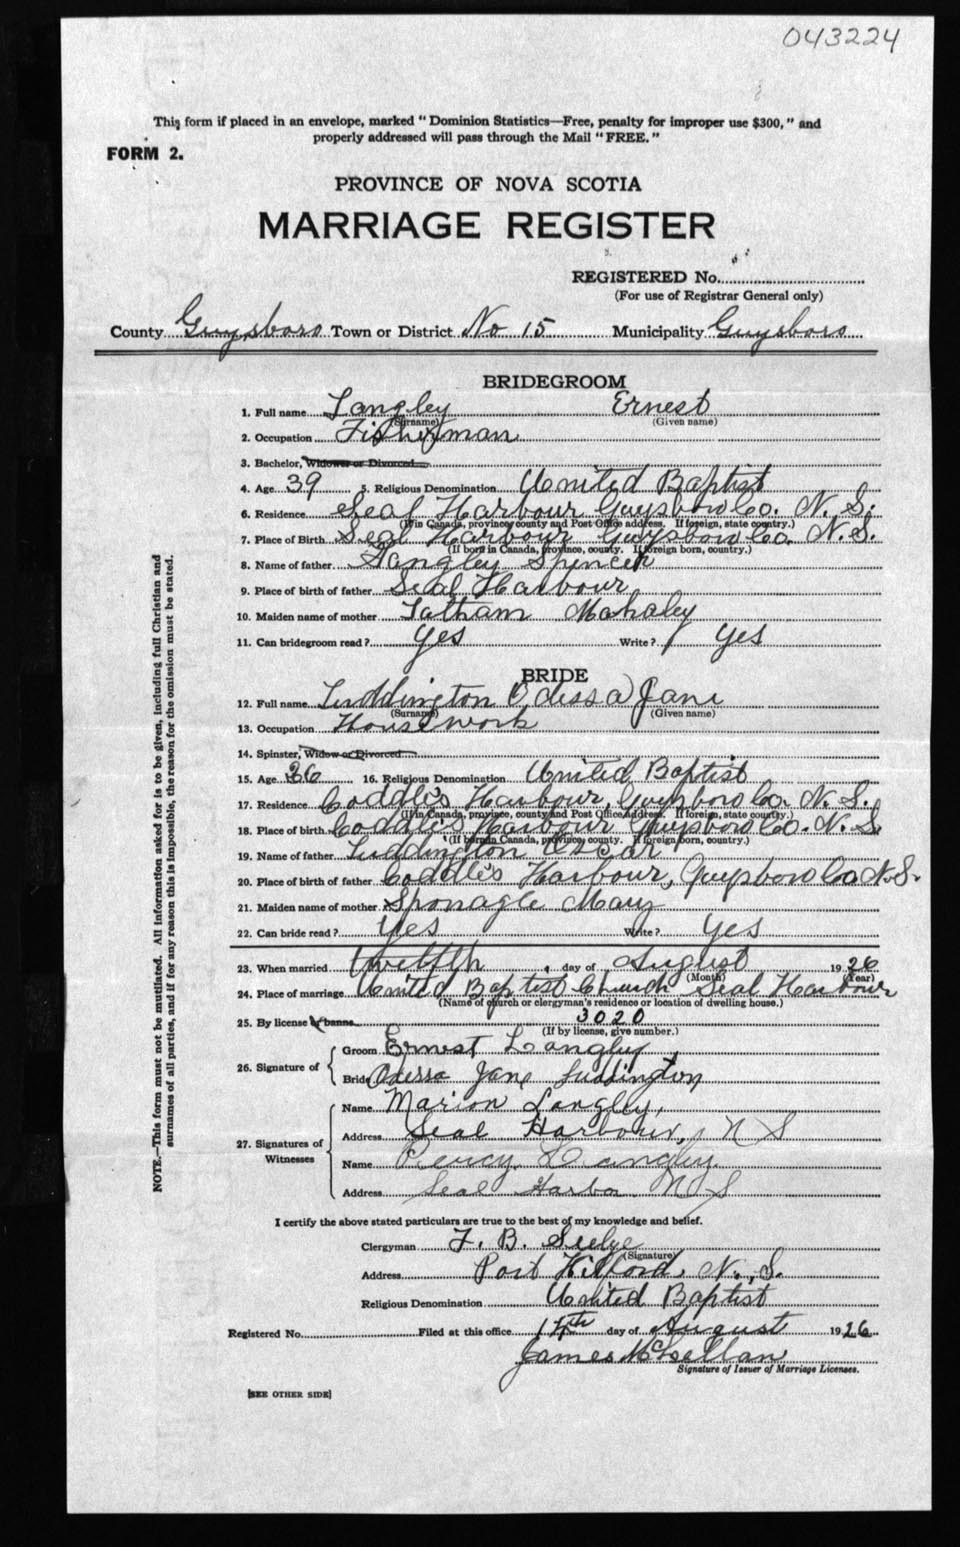 043224
This form if placed in an envelope, marked "Dominion Statistics—Free, penalty for improper use $300," and
properly addressed will pass through the Mail "FREE."
FORM 2.
PROVINCE OF NOVA SCOTIA
MARRIAGE REGISTER
REGISTERED No.
(For use of Registrar General only)
County Guysboro Town or District No 15 Municipality Guysboro
BRIDEGROOM
1. Full name Langley Ernest
(Surname) (Given name)
2. Occupation Fisherman
3. Bachelor, Widower or Divorced
4. Age 39 5. Religious Denomination United Baptist
6. Residence Seal Harbour Guysboro Co. N. S.
(If in Canada, province, county and Post Office address. If foreign, state country.)
7. Place of Birth Seal Harbour Guysboro Co. N. S.
(If born in Canada, province, county. If foreign born, country.)
8. Name of father Langley Spincer
9. Place of birth of father Seal Harbour
10. Maiden name of mother Latham Mahaley
11. Can bridegroom read? yes Write? yes
BRIDE
12. Full name Luddington Odessa Jane
(Surname) (Given name)
13. Occupation Housework
14. Spinster, Widow or Divorced
15. Age 36 16. Religious Denomination United Baptist
17. Residence Coddle's Harbour, Guysboro Co. N. S.
(If in Canada, province, county and Post Office Address. If foreign, state country.)
18. Place of birth Coddle's Harbour Guysboro Co. N. S.
(If born in Canada, province, county. If foreign born, country.)
19. Name of father Luddington Oscar
20. Place of birth of father Coddle's Harbour, Guysboro Co N.S.
21. Maiden name of mother Sponagle Mary
22. Can bride read? Yes Write? Yes
23. When married Twelfth day of August 1926
(Month) (Year)
24. Place of marriage United Baptist Church Seal Harbour
(Name of church or clergyman's residence or location of dwelling house.)
25. By license or banns 3020
(If by license, give number.)
26. Signature of
Groom Ernest Langley
Bride Odessa Jane Luddington
27. Signatures of Witnesses
Name Marion Langley,
Address Seal Harbour, N S
Name Percy Langley.
Address Seal Harbor N S
I certify the above stated particulars are true to the best of my knowledge and belief.
Clergyman F. B. Seelye
(Signature)
Address Port Hilford, N. S.
Religious Denomination United Baptist
Registered No. Filed at this office 14th day of August 1926
James McLellan
Signature of Issuer of Marriage Licenses.
[SEE OTHER SIDE]
NOTE.—This form must not be mutilated. All information asked for is to be given, including full Christian and
surnames of all parties, and if for any reason this is impossible, the reason for the omission must be stated.